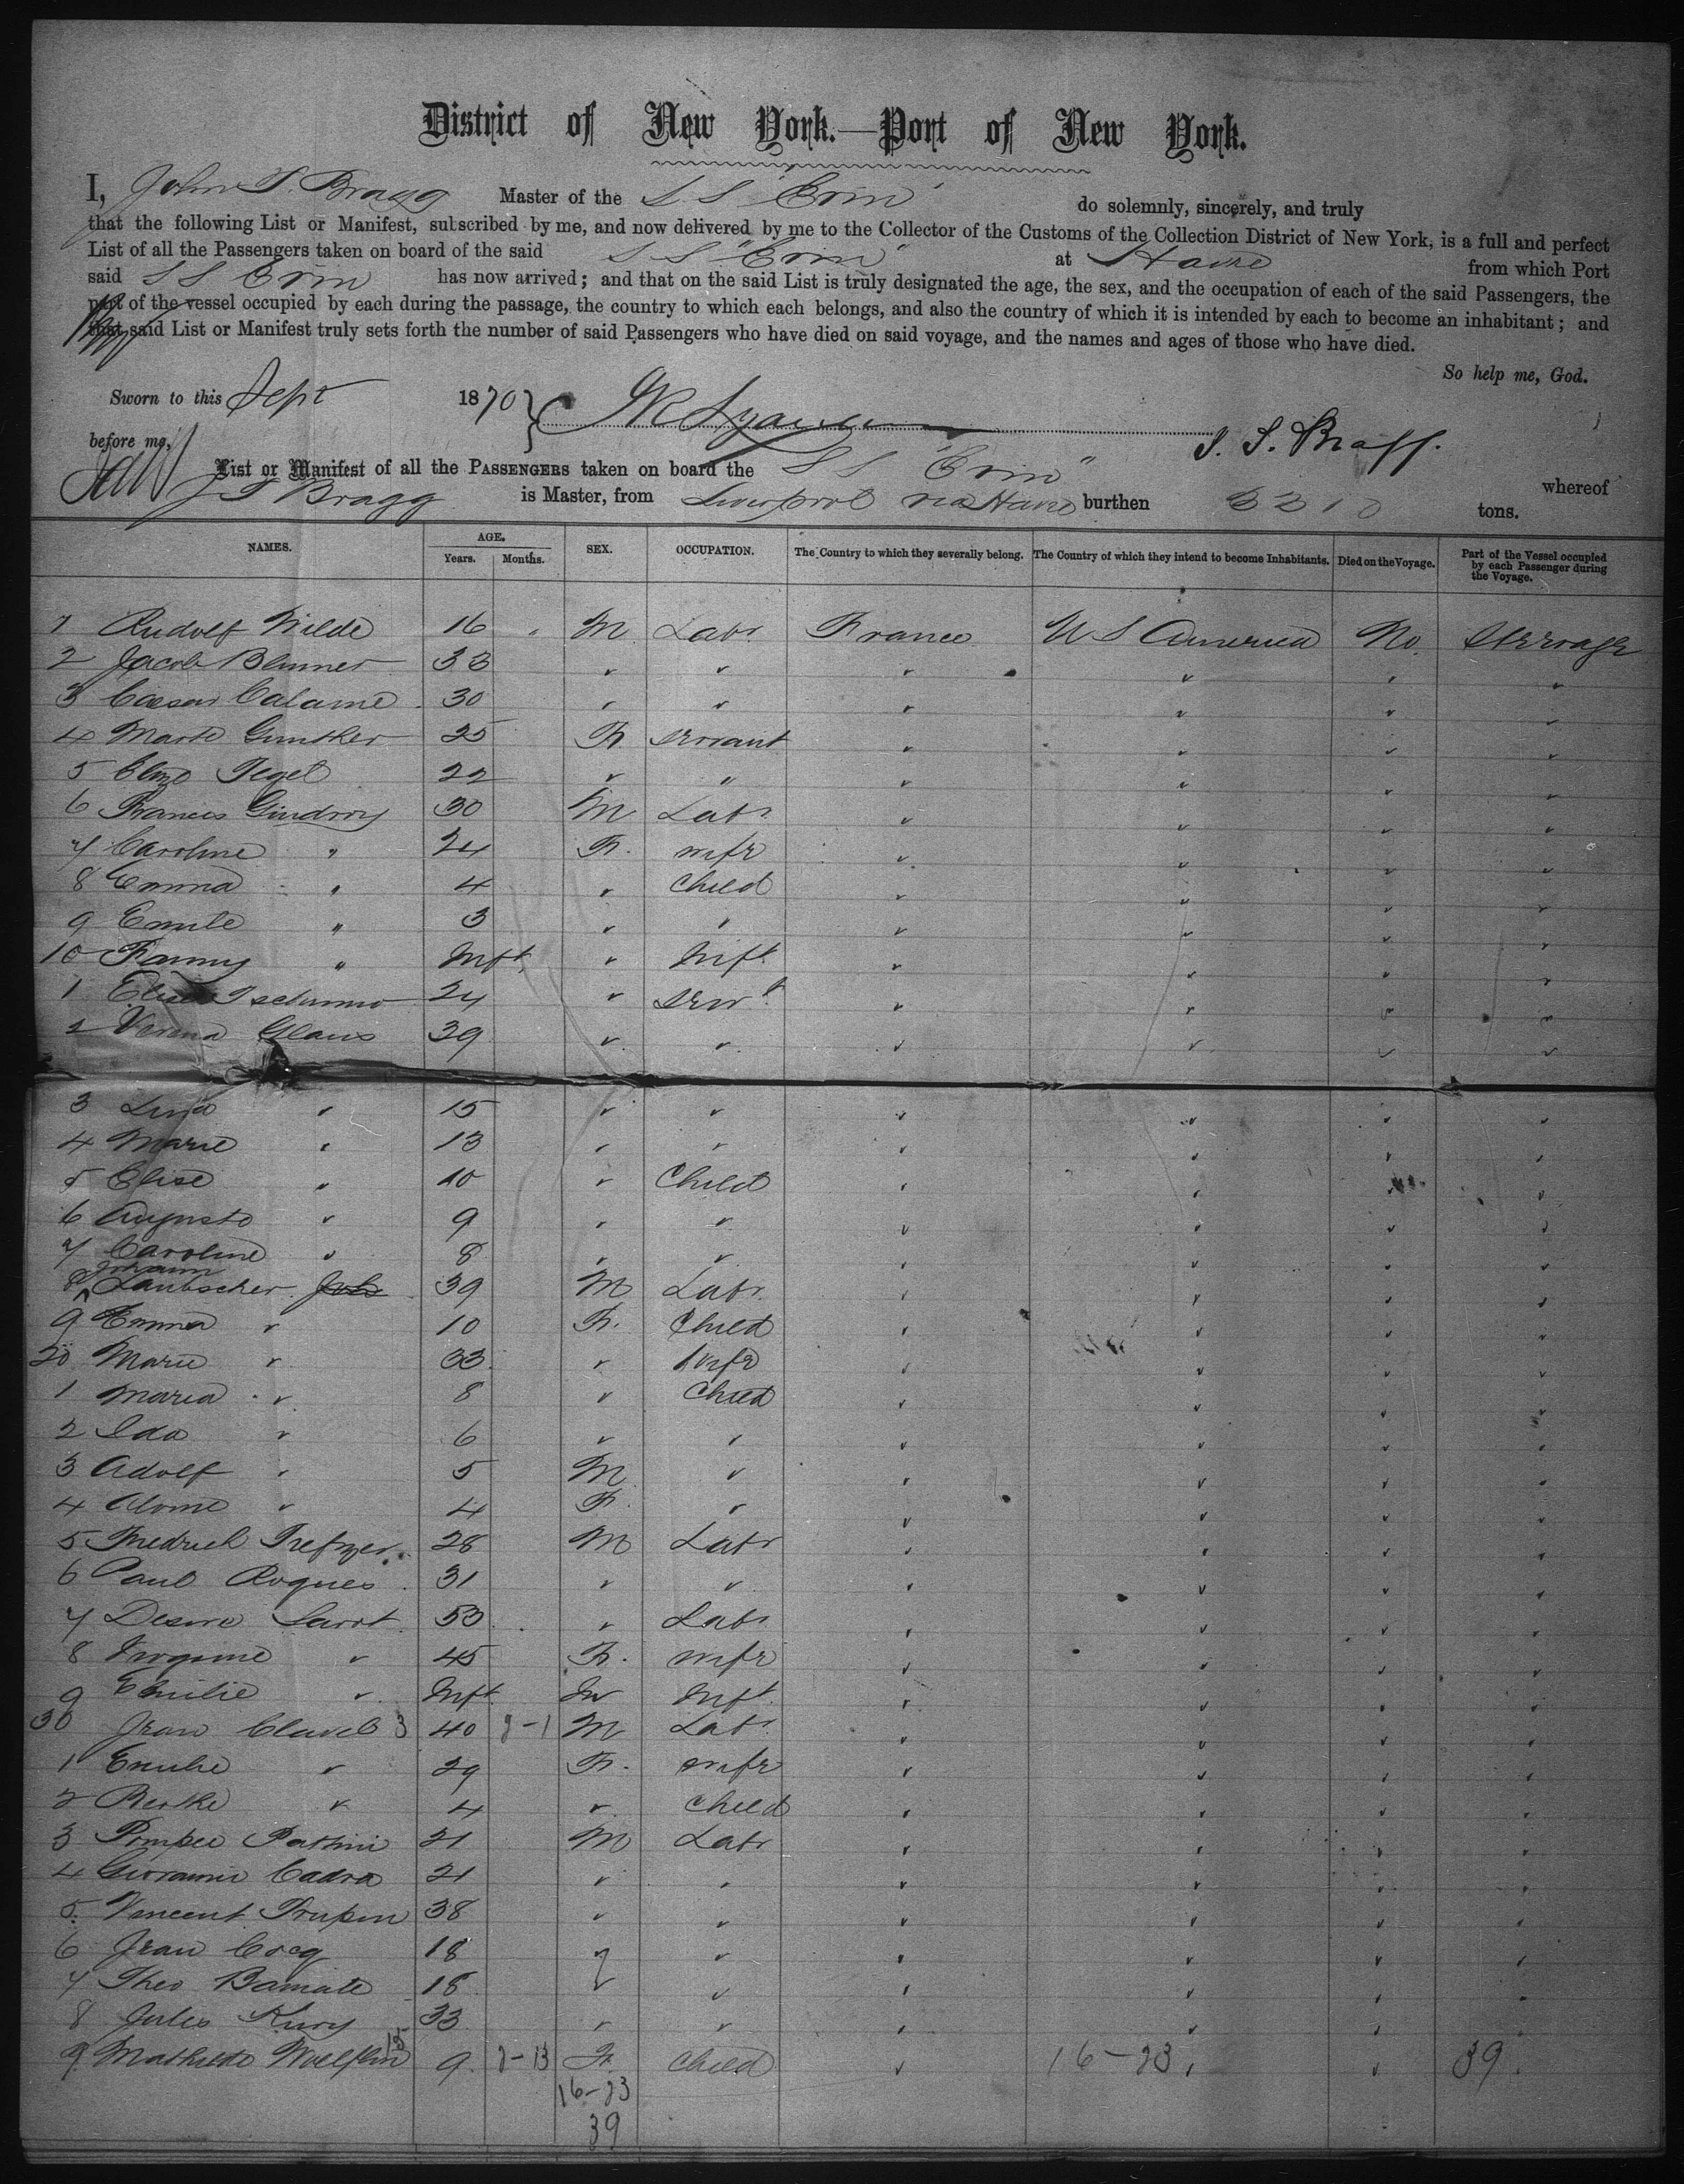 District of New York.—Port of New York.
I, John S. Bragg Master of the S S "Erin" do solemnly, sincerely, and truly
that the following List or Manifest, subscribed by me, and now delivered by me to the Collector of the Customs of the Collection District of New York, is a full and perfect
List of all the Passengers taken on board of the said S S "Erin" at Havre from which Port
said S S Erin has now arrived; and that on the said List is truly designated the age, the sex, and the occupation of each of the said Passengers, the
part of the vessel occupied by each during the passage, the country to which each belongs, and also the country of which it is intended by each to become an inhabitant; and
that said List or Manifest truly sets forth the number of said Passengers who have died on said voyage, and the names and ages of those who have died.
So help me, God.
Sworn to this Sept 1870
before me,
J. S. Bragg.
List or Manifest of all the PASSENGERS taken on board the S S "Erin" whereof
J S Bragg is Master, from Liverpool via Havre burthen 3310 tons.
NAMES. AGE. Years. Months. SEX. OCCUPATION. The Country to which they severally belong. The Country of which they intend to become Inhabitants. Died on the Voyage. Part of the Vessel occupied by each Passenger during the Voyage.
1 Rudolf Wilde 16 " M Labr France U S America No. Steerage
2 Jacob Blumer 33 " " " " " "
3 Caesar Calame 30 " " " " " "
4 Marte Gunther 25 F Servant " " " "
5 Tegel 22 " " " " " "
6 Francis Gindroy 30 M Labr " " " "
7 Caroline " 24 F. wife " " " "
8 Emma " 4 " Child " " " "
9 Emile " 3 " " " " " "
10 Fanny " Inft. " Inft " " " "
1 Elise Tschumo 24 " Servt " " " "
2 Verena Glaus 39 " " " " " "
3 Lina " 15 " " " " " "
4 Marie " 13 " " " " " "
5 Elise " 10 " Child " " " "
6 Auguste " 9 " " " " " "
7 Caroline " 8 " " " " " "
8 Johann Laubscher 39 M Labr " " " "
9 Emma " 10 F. Child " " " "
20 Marie " 33 " Wife " " " "
1 Maria " 8 " Child " " " "
2 Ida " 6 " " " " " "
3 Adolf " 5 M " " " " "
4 " 4 F. " " " " "
5 Fredrich Trefzer 28 M Labr " " " "
6 Paul Roques 31 " " " " " "
7 Desire Sarrot 53 " Labr " " " "
8 " 45 F. wife " " " "
9 Emilie " Inft Inft " " " "
30 Jean Clavel 3 40 M Labr " " " "
1 Emilie " 29 F. wife " " " "
2 Berthe " 4 " Child " " " "
3 Pompeo 21 M Labr " " " "
4 Giovanni Cadra 21 " " " " " "
5 Vincent Trupin 38 " " " " " "
6 Jean Cocq 18 " " " " " "
7 Theo Bamate 18 " " " " " "
8 Jules Kury 33 " " " " " "
9 Mathilde Woelflin 9 F. Child " 16-23 " 39
16-23
39